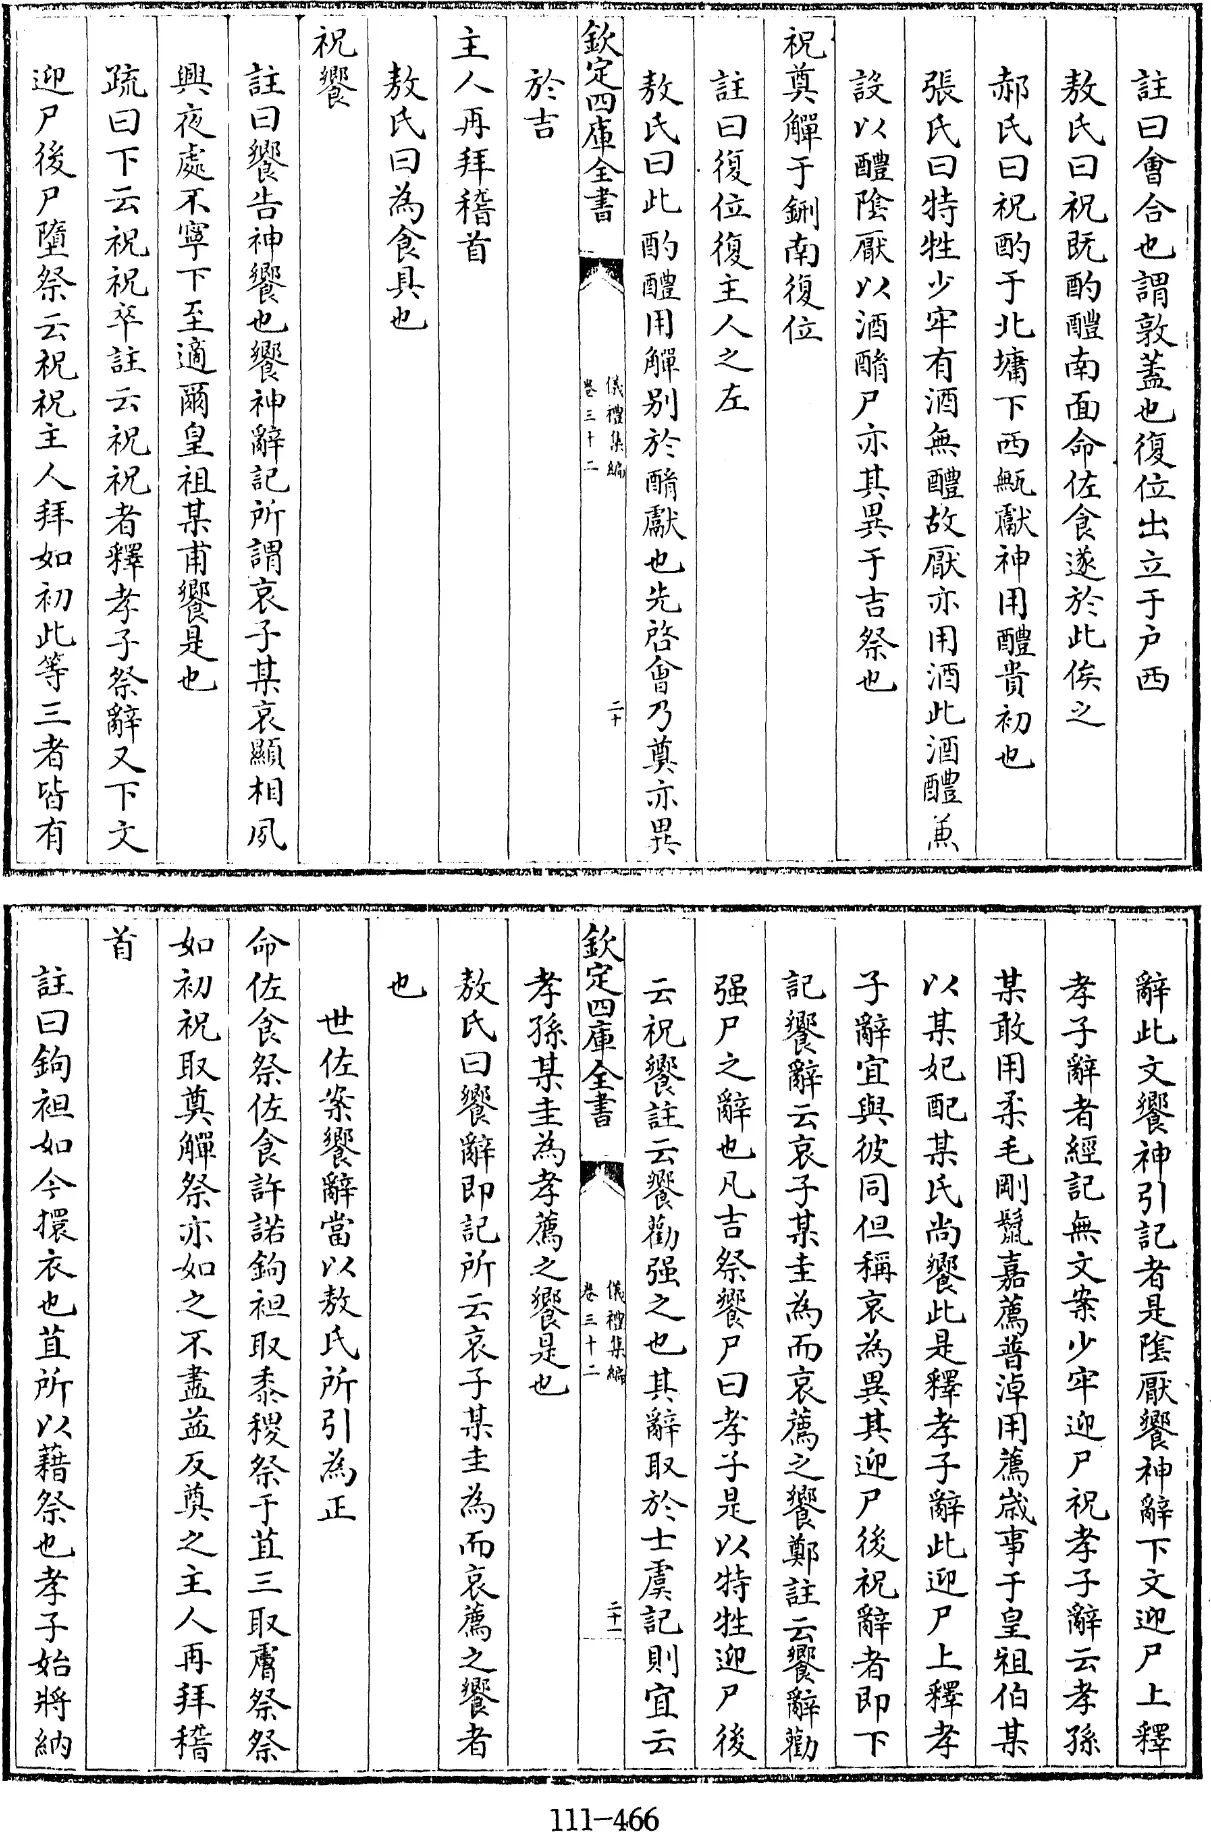 註曰會合也謂敦蓋也復位出立于户西
敖氏曰祝既酌醴南面命佐食遂於此俟之
郝氏曰祝酌于北墉下西甒獻神用醴貴初也
張氏曰特牲少牢有酒無醴故厭亦用酒此酒醴兼
設以醴陰厭以酒酳尸亦其異于吉祭也
祝奠觶于鉶南復位
註曰復位復主人之左
敖氏曰此酌醴用觶别於酳獻也先啓會乃奠亦異
欽定四庫全書
儀禮集編
卷三十二
二十
於吉
主人再拜稽首
敖氏曰為食具也
祝饗
註曰饗告神饗也饗神辭記所謂哀子某哀顯相夙
興夜處不寧下至適爾皇祖某甫饗是也
疏曰下云祝祝卒註云祝祝者釋孝子祭辭又下文
迎尸後尸墮祭云祝祝主人拜如初此等三者皆有
辭此文饗神引記者是隂厭饗神辭下文迎尸上釋
孝子辭者經記無文案少牢迎尸祝孝子辭云孝孫
某敢用柔毛剛鬛嘉薦普淖用薦歳事于皇祖伯某
以某妃配某氏尚饗此是釋孝子辭此迎尸上釋孝
子辭宜與彼同但稱哀為異其迎尸後祝辭者即下
記饗辭云哀子某圭為而哀薦之饗鄭註云饗辭勸
强尸之辭也凡吉祭饗尸曰孝子是以特牲迎尸後
云祝饗註云饗勸强之也其辭取於士虞記則宜云
欽定四庫全書
儀禮集編
卷三十二
二十一
孝孫某圭為孝薦之饗是也
敖氏曰饗辭即記所云哀子某圭為而哀薦之饗者
也
世佐案饗辭當以敖氏所引為正
命佐食祭佐食許諾鉤袒取黍稷祭于苴三取膚祭祭
如初祝取奠觶祭亦如之不盡益反奠之主人再拜稽
首
註曰鉤袒如今擐衣也苴所以藉祭也孝子始將納
111-466